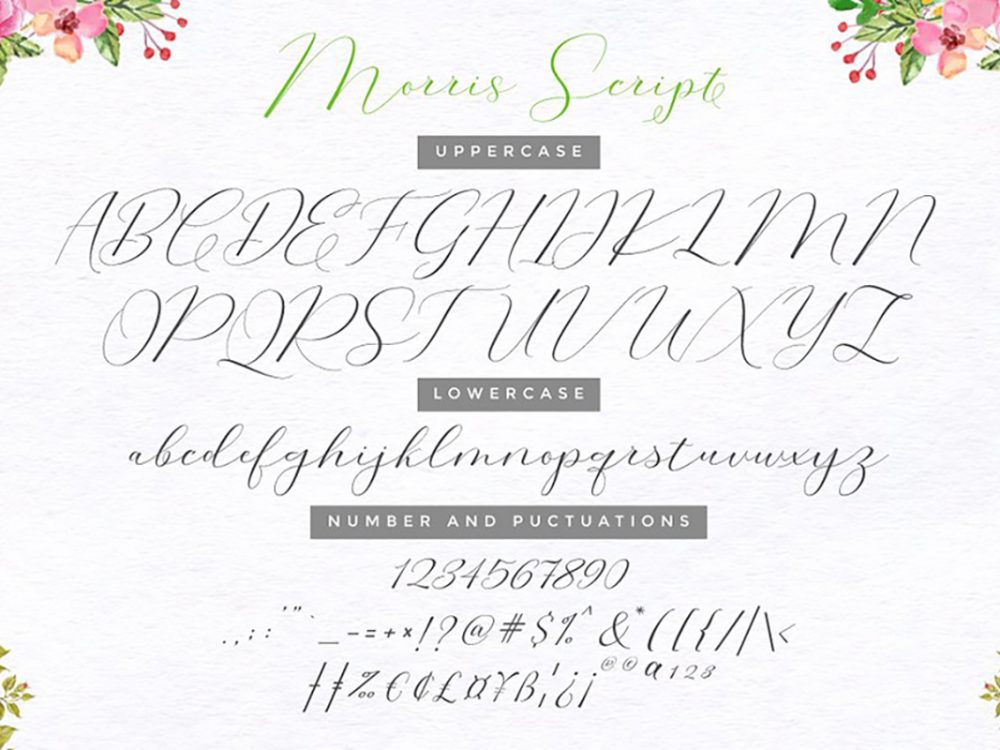 Morris Script
UPPERCASE
ABCDEFGHIJKLMN
OPQRSTUVWXYZ
LOWERCASE
abcdefghijklmnopqrstuvwxyz
NUMBER AND PUCTUATIONS
1234567890
. , ; : ' " ` _ - = + × ! ? @ # $ % ^ & * ( [ { / / | \ <
† ‡ ‰ € ¢ £ ¤ ¥ ß ¦ ¿ ¡ ® © ª ¹ ² ³